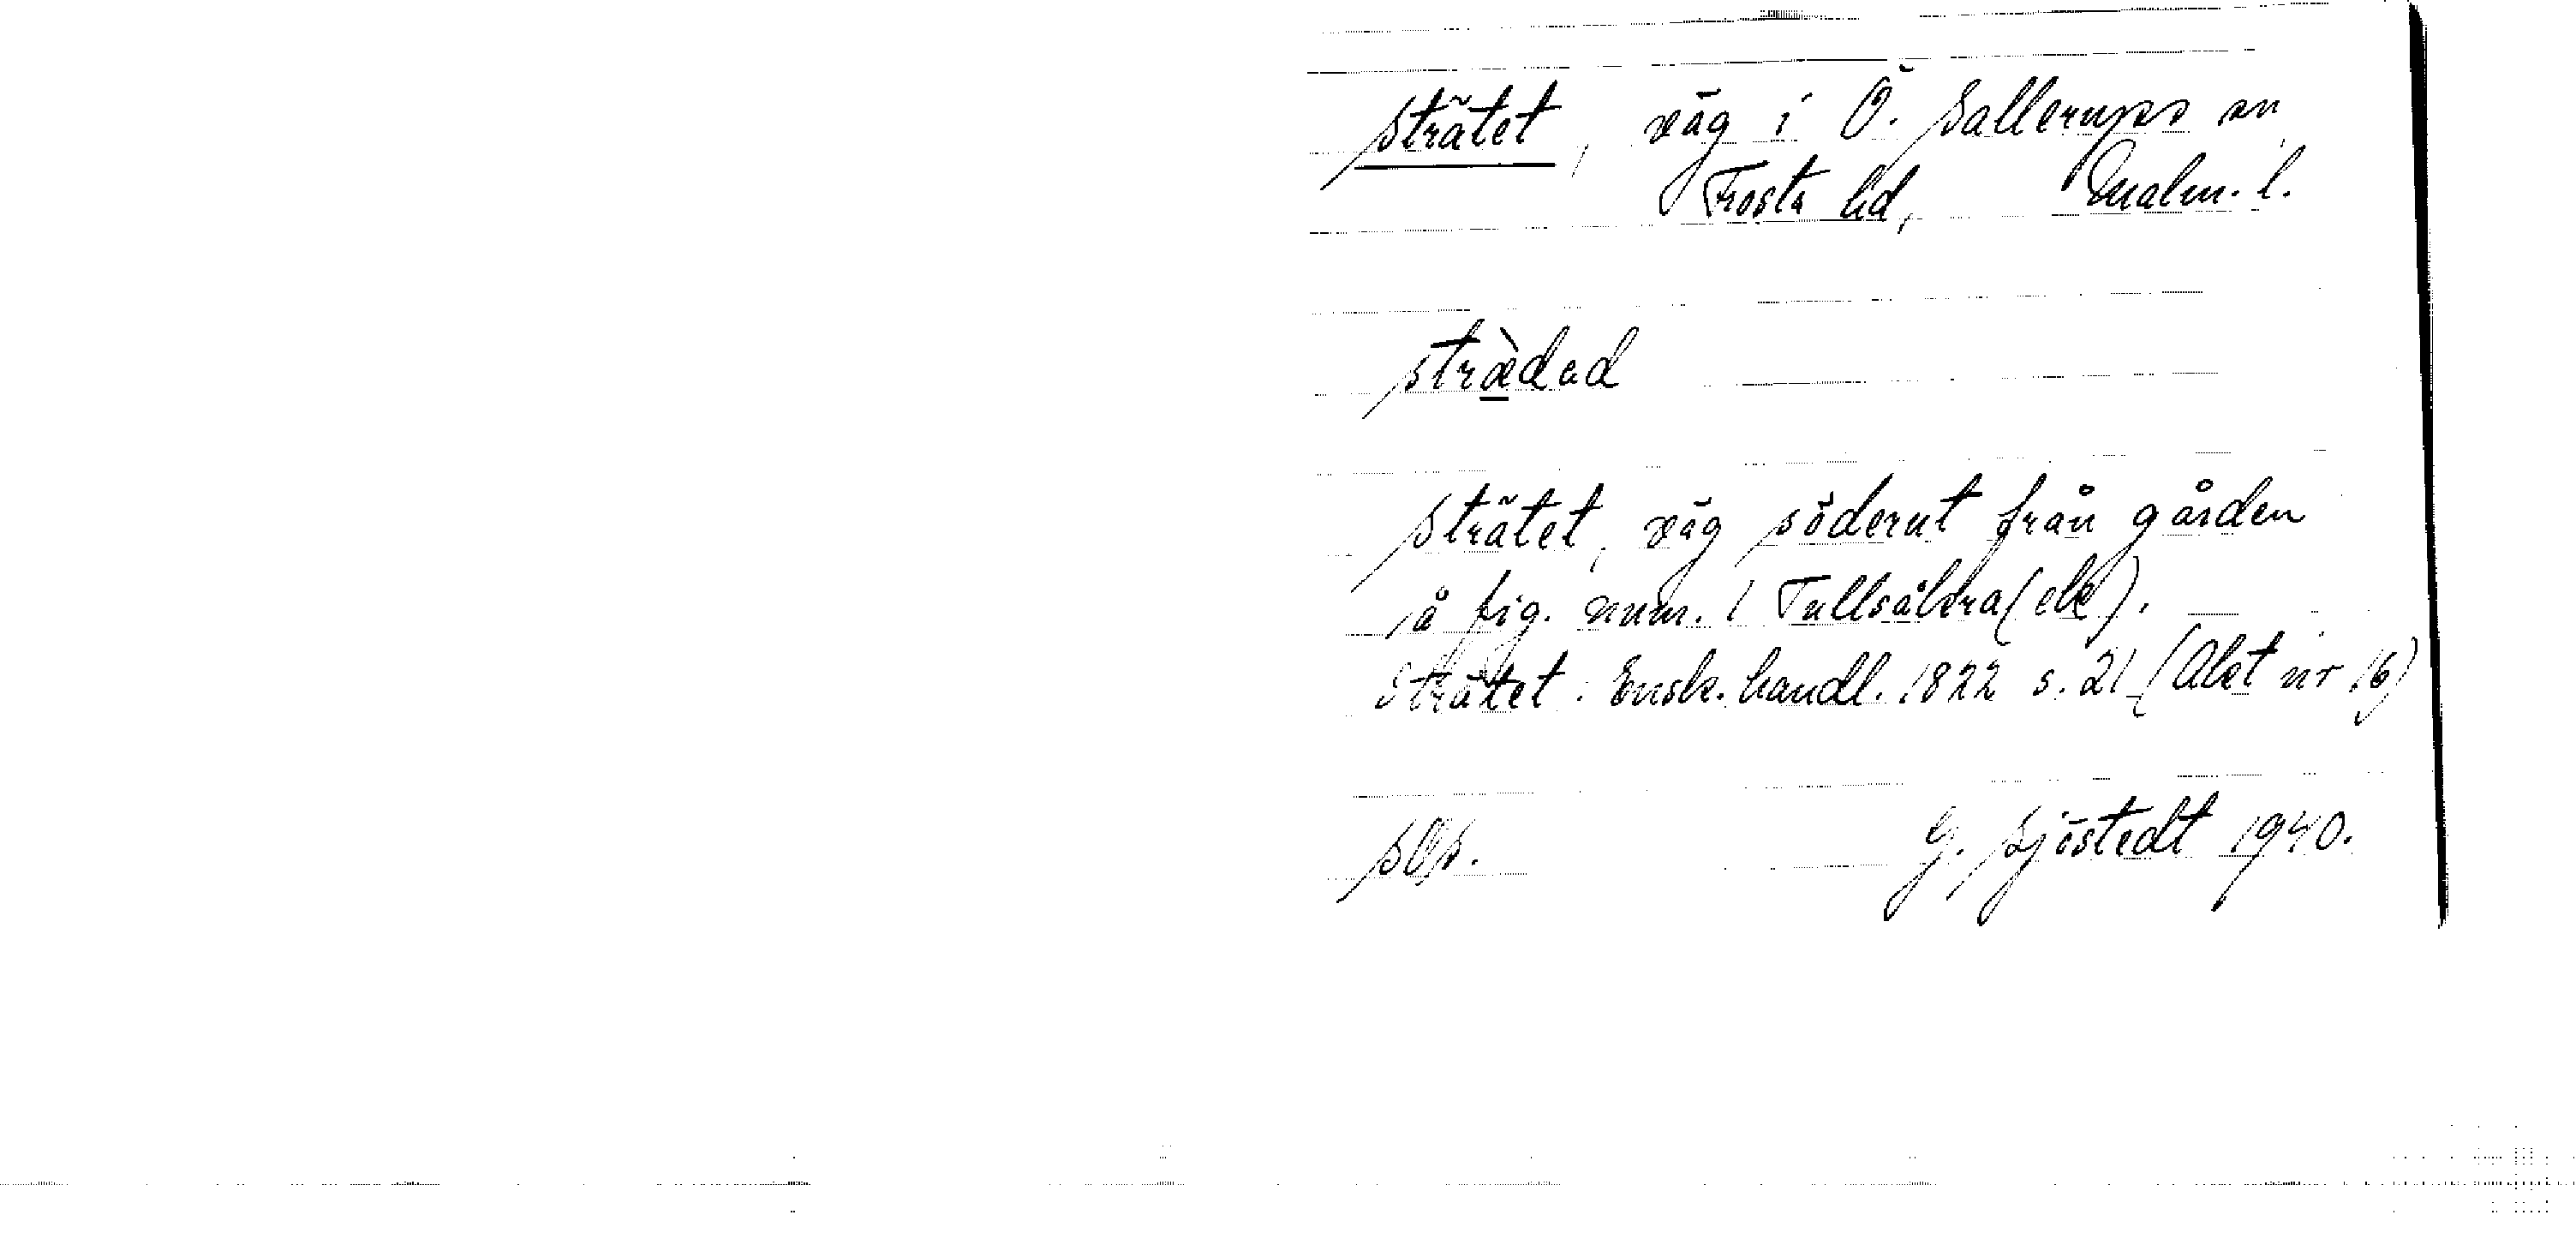 Strätet, väg i Ö. Sallerups sn
Frosta hd, Malm. l.
stræ̀dad
Strätet, väg söderut från gården
å fig. num. 1 Tullsåkra(ele).
Strätet: Ensk. handl. 1822 s. 21 (Akt nr 16)
sOs. G. Sjöstedt 1940.